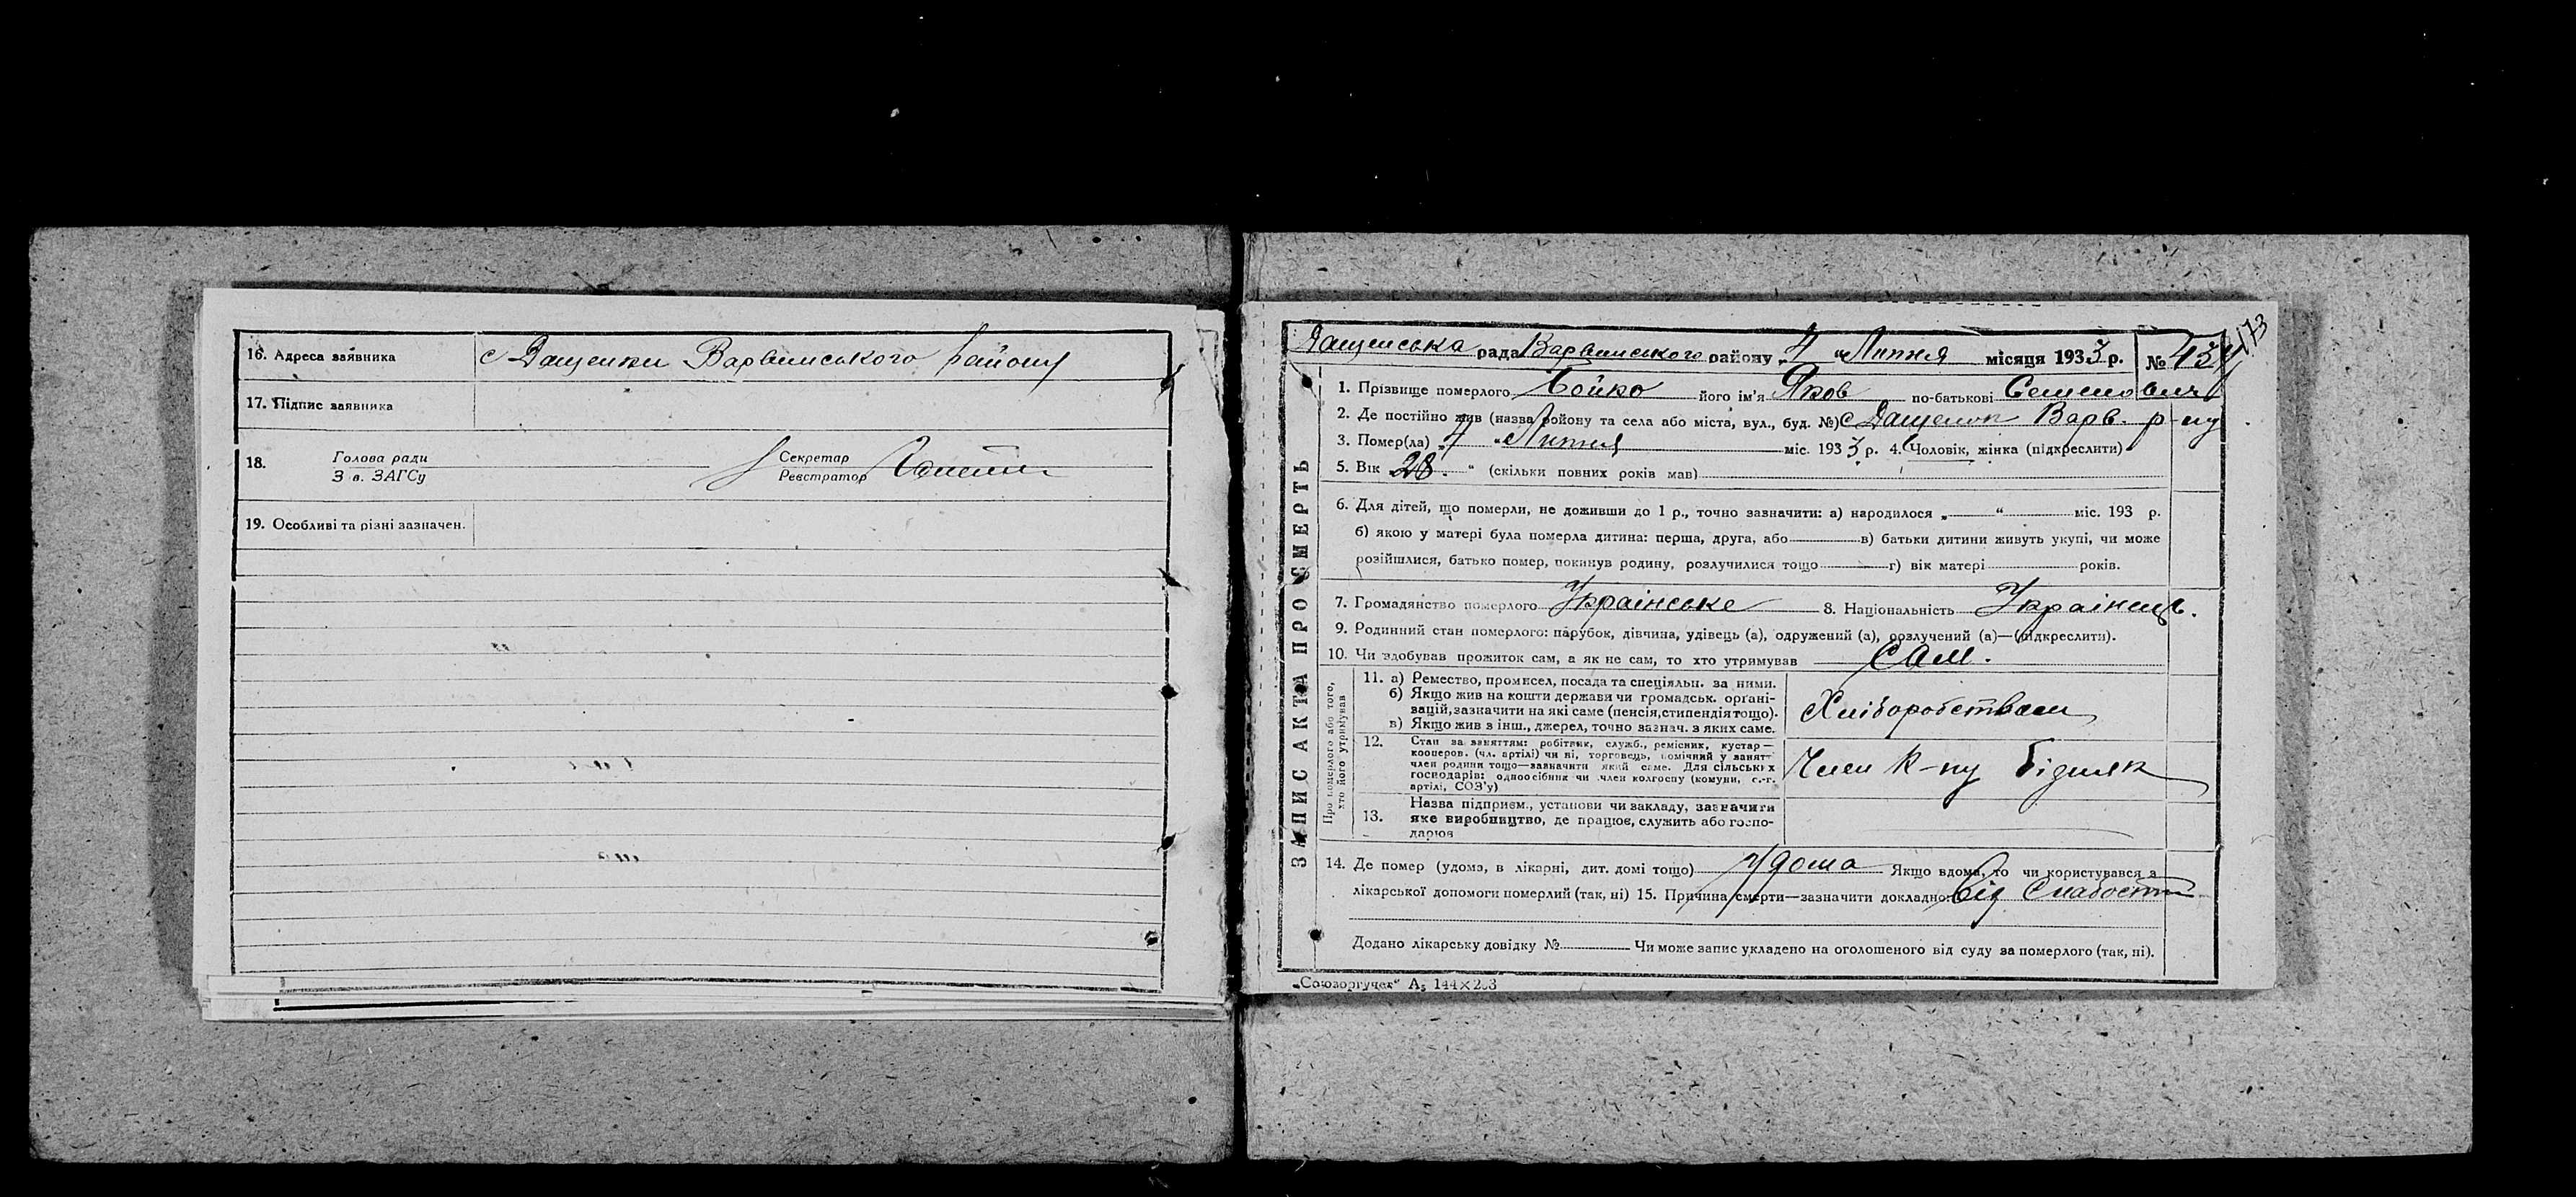 16. Адреса заявника с Дащенки Варвинського району
17. Підпис заявника
18. Голова ради Секретар
З в. ЗАГСу Реєстратор
19. Особливі та різні зазначен.
173
Дащенська рада Варвинського району „4 “ Липня місяця 1933 р. №
ЗАПИС АКТА ПРО СМЕРТЬ
1. Прізвище померлого Бойко його ім'я Яков по-батькові Семенович
2. Де постійно жив (назва району та села або міста, вул., буд. №) с Дащенки Варв. р-ну
3. Помер(ла) „4 “ Липня міс. 1933 р. 4. Чоловік, жінка (підкреслити)
5. Вік 28 “ (скільки повних років мав)
6. Для дітей, що померли, не доживши до 1 р., точно зазначити: а) народилося „ “ міс. 193 р.
б) якою у матері була померла дитина: перша, друга, або в) батьки дитини живуть укупі, чи може
розійшлися, батько помер, покинув родину, розлучилися тощо г) вік матері років.
7. Громадянство померлого Українське 8. Національність Українець.
9. Родинний стан померлого: парубок, дівчина, удівець (а), одружений (а), розлучений (а)—(підкреслити).
10. Чи здобував прожиток сам, а як не сам, то хто утримував Сам.
Про померлого або того,
хто його утримував
11. а) Ремество, промисел, посада та спеціяльн. за ними.
б) Якщо жив на кошти держави чи громадськ. орґані-
зацій, зазначити на які саме (пенсія, стипендія тощо).
в) Якщо жив з інш., джерел, точно зазнач. з яких саме.
Хліборобством
12. Стан за заняттям: робітник, служб., ремісник, кустар—
кооперов. (чл. артілі) чи ні, торговець, помічний у занят—
член родини тощо—зазначити який саме. Для сільських
господарів: одноосібник чи член колгоспу (комуни, с.-г.
артілі, СОЗ'у)
Член к-пу бідняк
13. Назва підприєм., установи чи закладу, зазначити
яке виробництво, де працює, служить або госпо-
дарює
14. Де помер (удома, в лікарні, дит. домі тощо) Удома Якщо вдома, то чи користувався з
лікарської допомоги померлий (так, ні) 15. Причина смерти—зазначити докладно: Від Слабости
Додано лікарську довідку № Чи може запис укладено на оголошеного від суду за померлого (так, ні).
„Союзоргучет“ А₅ 144×203